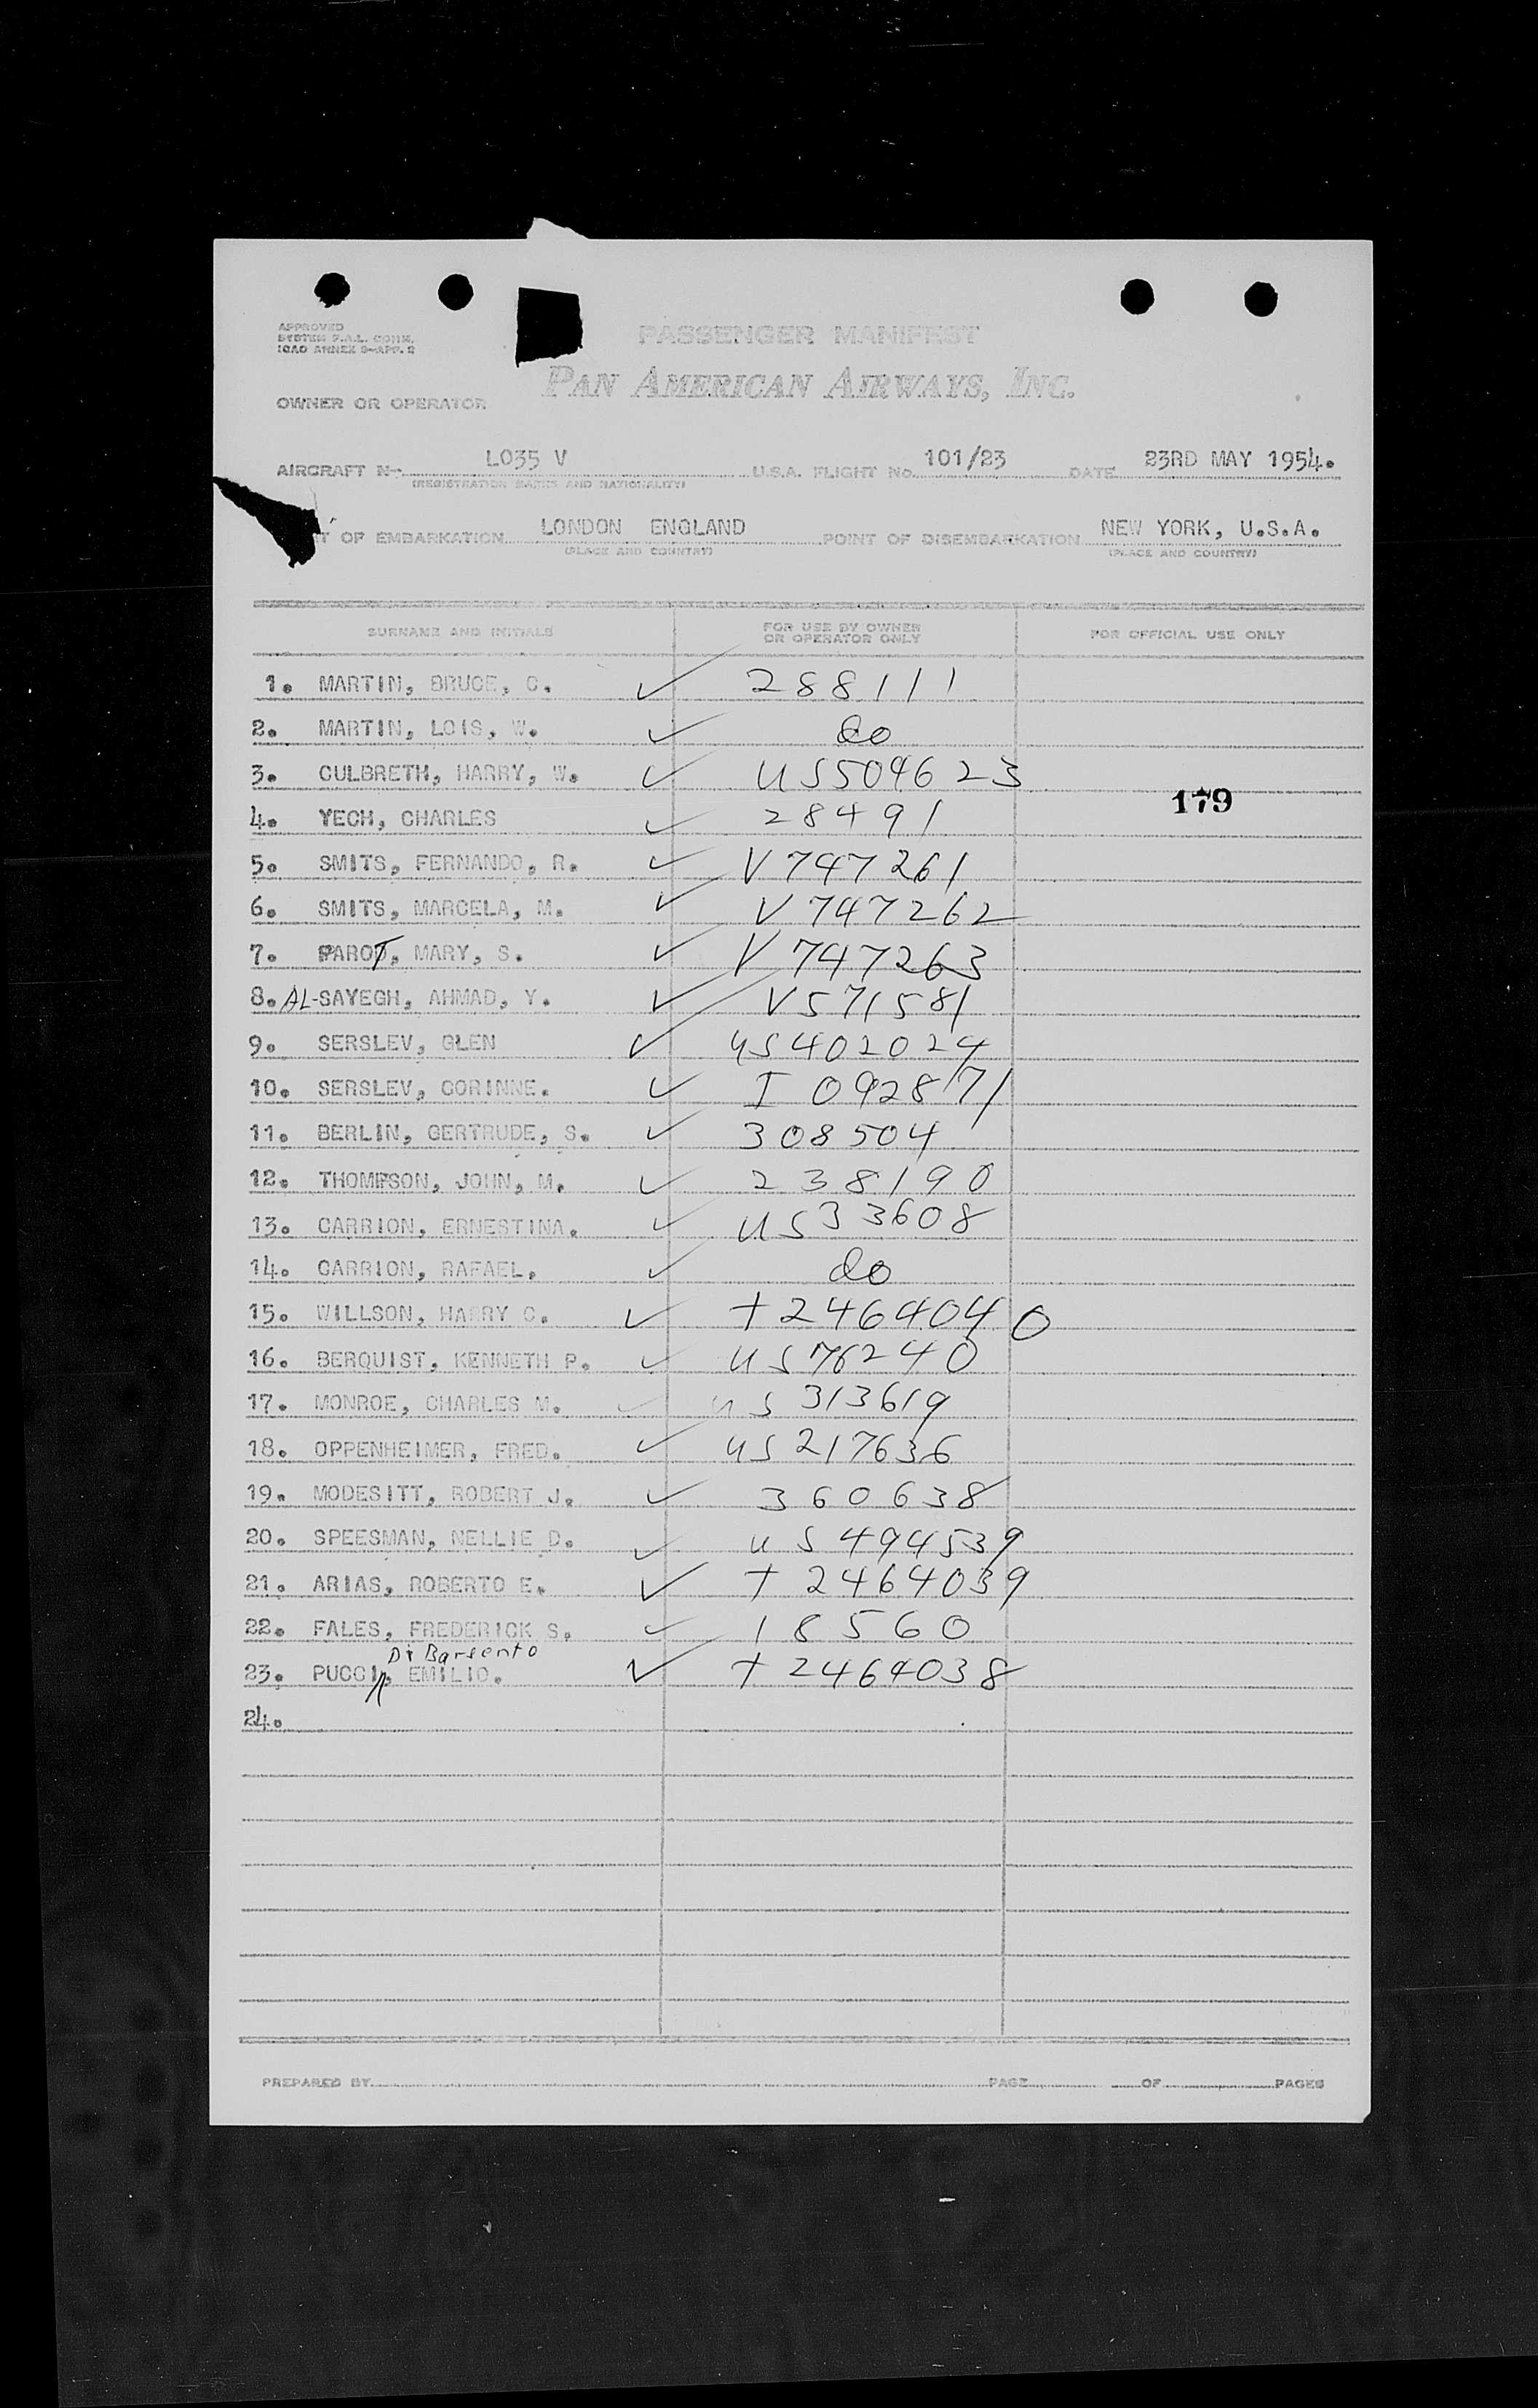 APPROVED
SYSTEM F.A.L. COMM.
ICAO ANNEX 9-APP. 2
PASSENGER MANIFEST
PAN AMERICAN AIRWAYS, INC.
OWNER OR OPERATOR
AIRCRAFT No. L035 V U.S.A. FLIGHT No. 101/23 DATE 23RD MAY 1954.
(REGISTRATION MARKS AND NATIONALITY)
T OF EMBARKATION LONDON ENGLAND POINT OF DISEMBARKATION NEW YORK, U.S.A.
(PLACE AND COUNTRY) (PLACE AND COUNTRY)
SURNAME AND INITIALS FOR USE BY OWNER OR OPERATOR ONLY FOR OFFICIAL USE ONLY
1. MARTIN, BRUCE, C. ✓ 288111
2. MARTIN, LOIS, W. ✓ do
3. CULBRETH, HARRY, W. ✓ US504623
179
4. YECH, CHARLES ✓ 28491
5. SMITS, FERNANDO, R. ✓ V747261
6. SMITS, MARCELA, M. ✓ V747262
7. PAROT, MARY, S. ✓ V747263
8. AL-SAYEGH, AHMAD, Y. ✓ V571581
9. SERSLEV, GLEN ✓ US402024
10. SERSLEV, CORINNE. ✓ I 092871
11. BERLIN, GERTRUDE, S. ✓ 308504
12. THOMPSON, JOHN, M. ✓ 238190
13. CARRION, ERNESTINA. ✓ US33608
14. CARRION, RAFAEL. ✓ do
15. WILLSON, HARRY C. ✓ + 2464040
16. BERQUIST, KENNETH P. ✓ US76240
17. MONROE, CHARLES M. ✓ US313619
18. OPPENHEIMER, FRED. ✓ US217636
19. MODESITT, ROBERT J. ✓ 360638
20. SPEESMAN, NELLIE D. ✓ US494539
21. ARIAS, ROBERTO E. ✓ + 2464039
22. FALES, FREDERICK S. ✓ 18560
Di Barsento
23. PUCCI, EMILIO. ✓ + 2464038
24.
PREPARED BY PAGE OF PAGES